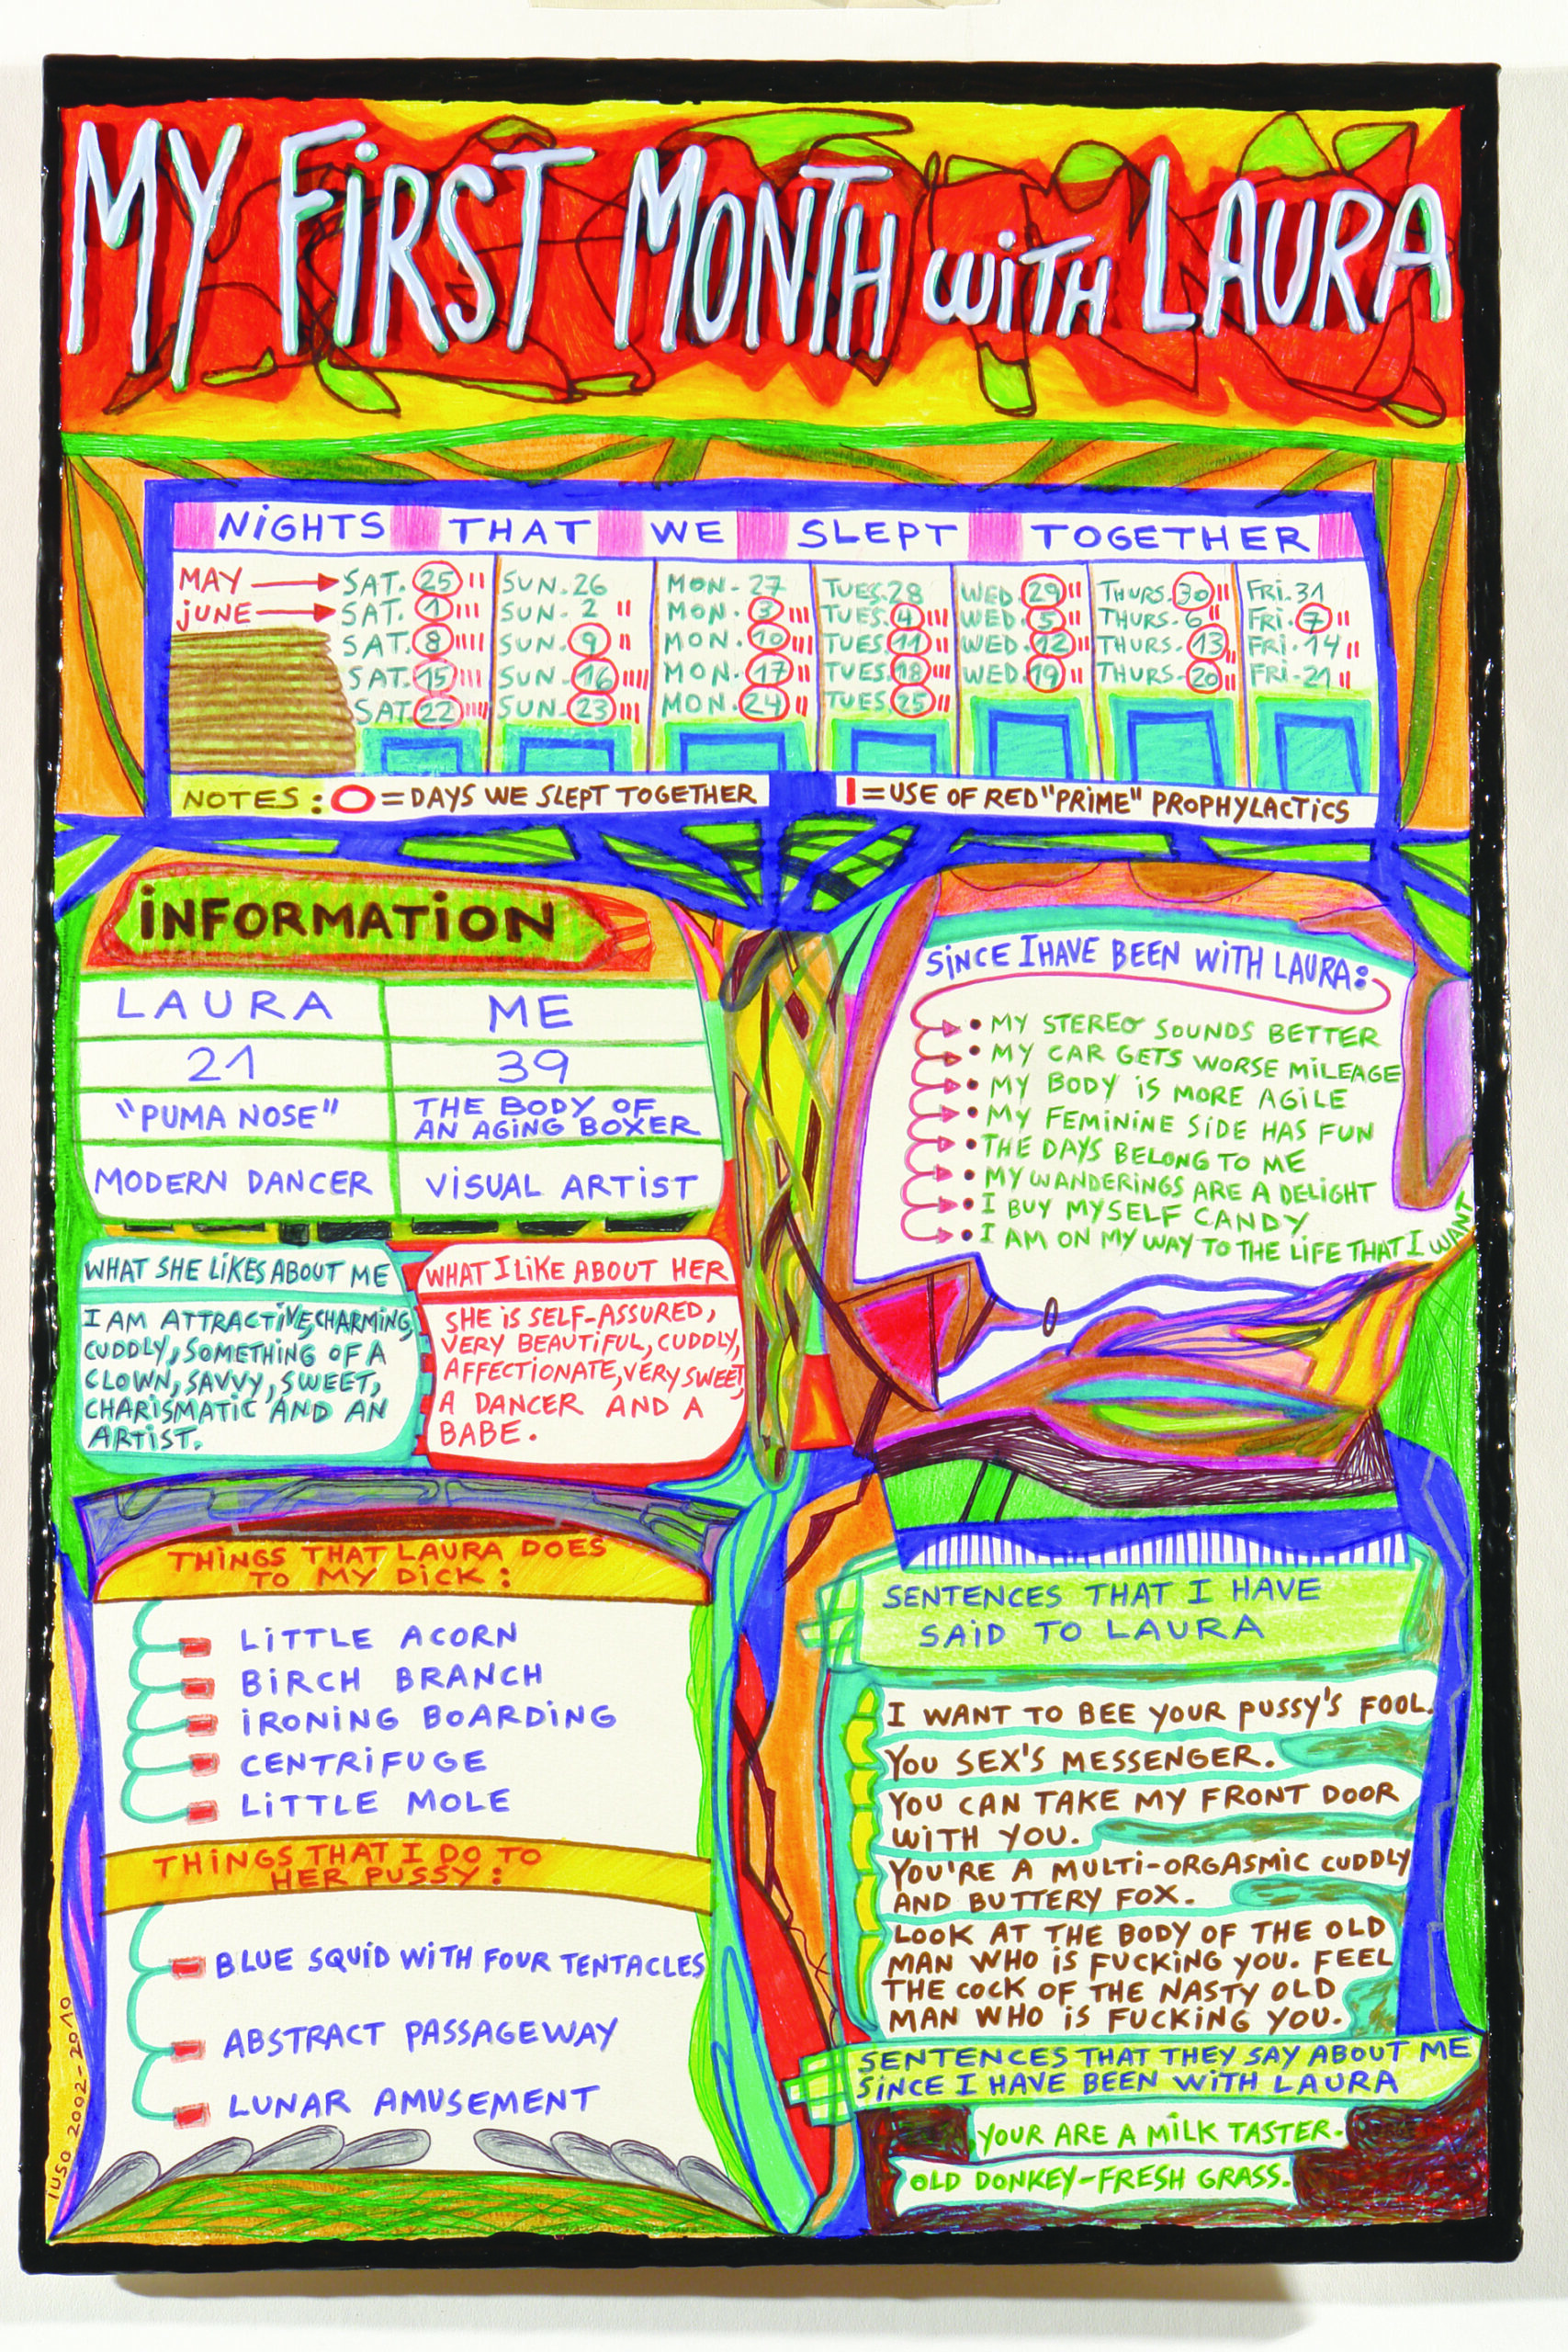 MY FiRST MONTH WiTH LAURA
NiGHTS THAT WE SLEPT TOGETHER
MAY SAT. 25 II SUN. 26 MON- 27 TUES. 28 WED. 29 II THURS. 30 II FRi. 31
JUNE SAT. 1 III SUN- 2 II MON. 3 III TUES. 4 III WED. 5 II THURS. 6 II FRi. 7 II
SAT. 8 IIII SUN. 9 II MON. 10 III TUES. 11 II WED. 12 III THURS. 13 II FRi. 14 II
SAT. 15 III SUN. 16 IIII MON. 17 II TUES. 18 III WED. 19 II THURS- 20 II FRi- 21 II
SAT. 22 IIII SUN. 23 III MON. 24 II TUES. 25 II
NOTES: O = DAYS WE SLEPT TOGETHER I = USE OF RED "PRiME" PROPHYLACTiCS
iNFORMATiON
LAURA ME
21 39
"PUMA NOSE" THE BODY OF
AN AGiNG BOXER
MODERN DANCER ViSUAL ARTiST
WHAT SHE LiKES ABOUT ME
I AM ATTRACTiVE, CHARMiNG,
CUDDLY, SOMETHiNG OF A
CLOWN, SAVVY, SWEET,
CHARiSMATiC AND AN
ARTiST.
WHAT I LiKE ABOUT HER
SHE iS SELF-ASSURED,
VERY BEAUTiFUL, CUDDLY,
AFFECTiONATE, VERY SWEET,
A DANCER AND A
BABE.
SiNCE I HAVE BEEN WiTH LAURA:
• MY STEREO SOUNDS BETTER
• MY CAR GETS WORSE MiLEAGE
• MY BODY iS MORE AGiLE
• MY FEMiNiNE SiDE HAS FUN
• THE DAYS BELONG TO ME
• MY WANDERiNGS ARE A DELiGHT
• I BUY MYSELF CANDY
• I AM ON MY WAY TO THE LiFE THAT I WANT
THiNGS THAT LAURA DOES
TO MY DiCK:
LiTTLE ACORN
BiRCH BRANCH
iRONiNG BOARDiNG
CENTRiFUGE
LiTTLE MOLE
THiNGS THAT I DO TO
HER PUSSY:
BLUE SQUiD WiTH FOUR TENTACLES
ABSTRACT PASSAGEWAY
LUNAR AMUSEMENT
SENTENCES THAT I HAVE
SAiD TO LAURA
I WANT TO BEE YOUR PUSSY'S FOOL.
YOU SEX'S MESSENGER.
YOU CAN TAKE MY FRONT DOOR
WiTH YOU.
YOU'RE A MULTi-ORGASMiC CUDDLY
AND BUTTERY FOX.
LOOK AT THE BODY OF THE OLD
MAN WHO iS FUCKiNG YOU. FEEL
THE COCK OF THE NASTY OLD
MAN WHO iS FUCKiNG YOU.
SENTENCES THAT THEY SAY ABOUT ME
SiNCE I HAVE BEEN WiTH LAURA
YOUR ARE A MiLK TASTER.
OLD DONKEY-FRESH GRASS.
IUSO 2002-2010